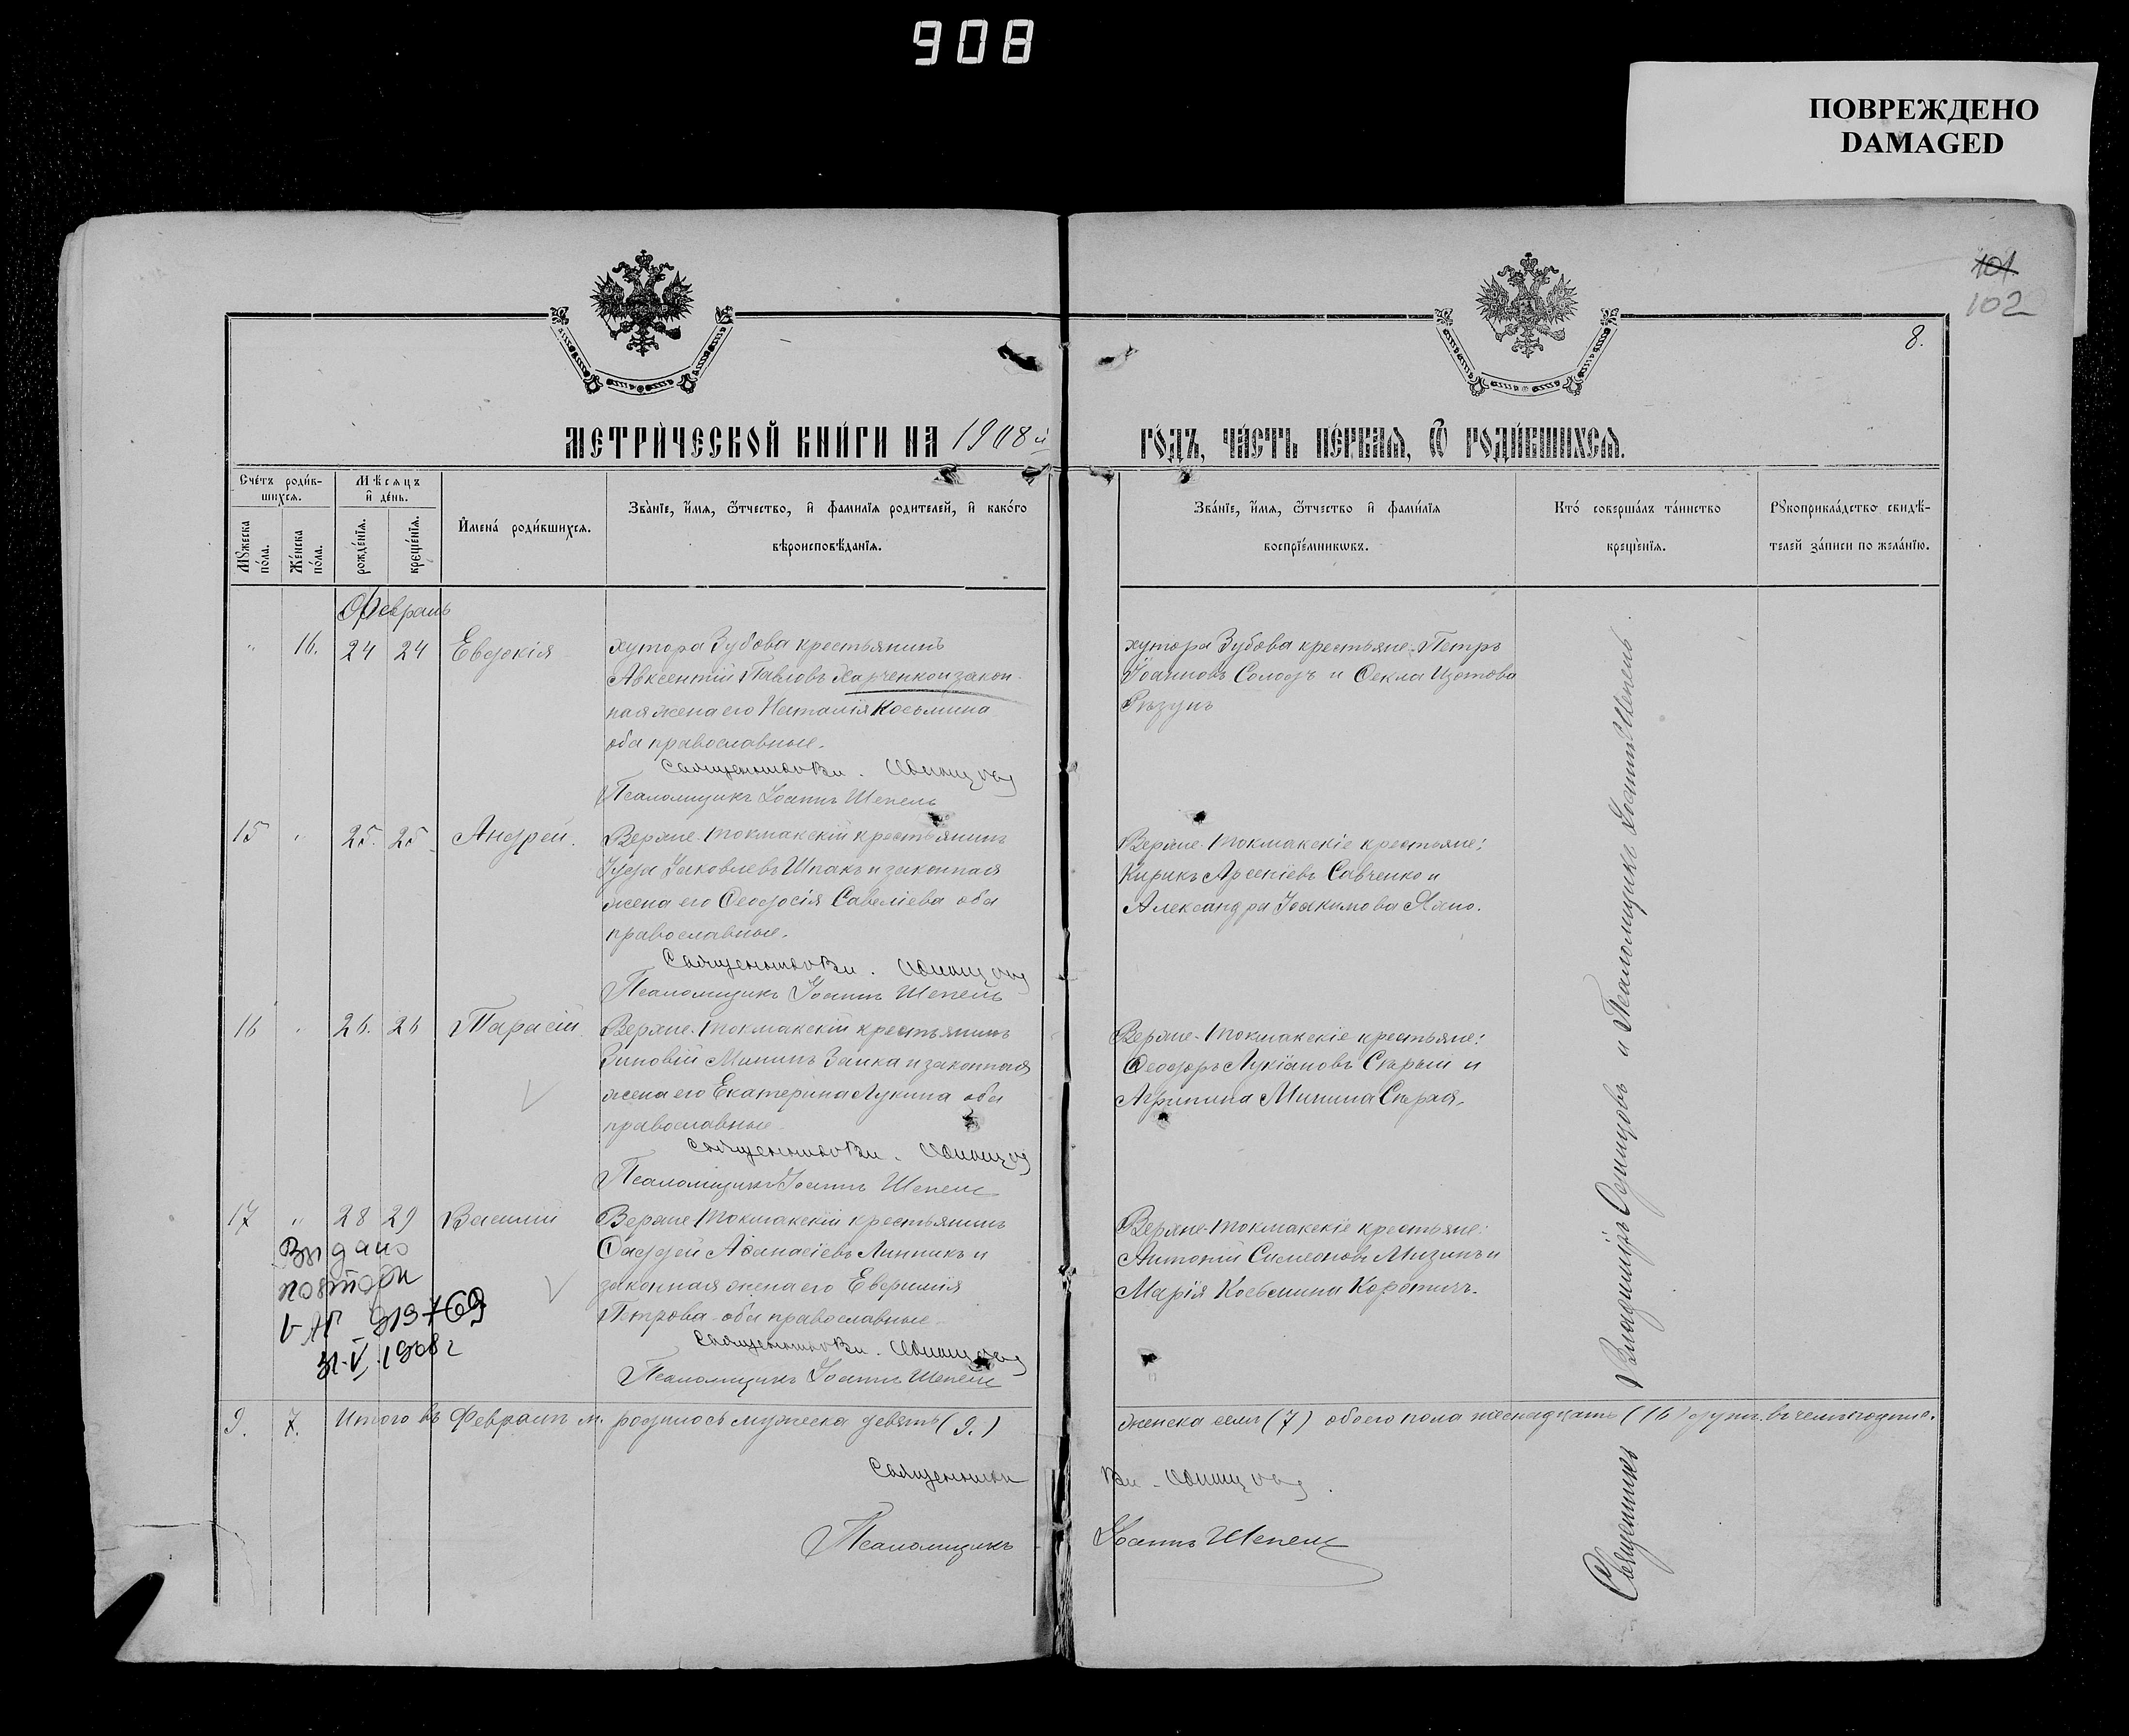 908
ПОВРЕЖДЕНО
DAMAGED
101.
102
8.
МЕТРИ́ЧЕСКОЙ КНИ́ГИ НА 1908й
ГО́ДЪ, ЧА́СТЬ ПЕ́РВАЯ, Ѿ РОДИ́ВШИХСЯ.
Сче́тъ роди́в-
шихся.
Мꙋ́жеска по́ла.
Же́нска по́ла.
Мѣ́сяцъ
и҆ де́нь.
рожде́нїя.
креще́нїя.
И҆мена̀ роди́вшихся.
Зва́нїе, и҆́мя, ѻ҆́тчество, и҆ фами́лїя роди́телей, и҆ како́го
вѣроисповѣ́данїя.
Зва́нїе, и҆́мя, ѻ҆́тчество и҆ фами́лїя
воспрїе́мникѡвъ.
Кто́ соверша́лъ та́инство
креще́нїя.
Рꙋкоприкла́дство свидѣ́-
телей за́писи по жела́нїю.
Февраль
" 16. 24 24 Евдокія
хутора Зубова крестьянинъ
Авксентій Павловъ Харченко и закон-
ная жена его Наталія Косьмина
оба православные.
Священникъ Вл. Одинцовъ
Псаломщикъ Іоаннъ Шепель
хутора Зубова крестьяне: Петръ
Іоанновъ Солодъ и Ѳекла Изотова
Рѣзунъ
15 " 25. 25 Андрей.
Верхне-Токмакскій крестьянинъ
Іуда Іаковлевъ Шпакъ и законная
жена его Ѳеодосія Савеліева оба
православные.
Священникъ Вл. Одинцовъ
Псаломщикъ Іоаннъ Шепель
Верхне-Токмакскіе крестьяне:
Кирикъ Арсеніевъ Савченко и
Александра Іоакимова
16 " 26. 26 Тарасій
Верхне-Токмакскій крестьянинъ
Зиновій Мининъ Заика и законная
жена его Екатерина Лукина оба
православные.
Священникъ Вл. Одинцовъ
Псаломщикъ Іоаннъ Шепель
Верхне-Токмакскіе крестьяне:
Ѳеодоръ Лукіановъ Сѣрый и
Агрипина Минина Сѣрая.
17 " 28 29 Василій
Верхне-Токмакскій крестьянинъ
Ѳаддей Аѳанасіевъ Линникъ и
законная жена его Евфимія
Петрова оба православные.
Священникъ Вл. Одинцовъ
Псаломщикъ Іоаннъ Шепель
Верхне-Токмакскіе крестьяне:
Антоній Симеоновъ Мизинъ и
Марія Косьмина Коротичъ.
Выдано
повторн
V-АП 313769
31.V.1968 г
9. 7. Итого въ Февралѣ м. родилось мужеска девять (9.)
женска семь (7) обоего пола шеснадцать (16) душъ. въ чемъ
Священникъ Вл. Одинцовъ.
Псаломщикъ Іоаннъ Шепель
Священникъ Владиміръ Одинцовъ и Псаломщикъ Іоаннъ Шепель.